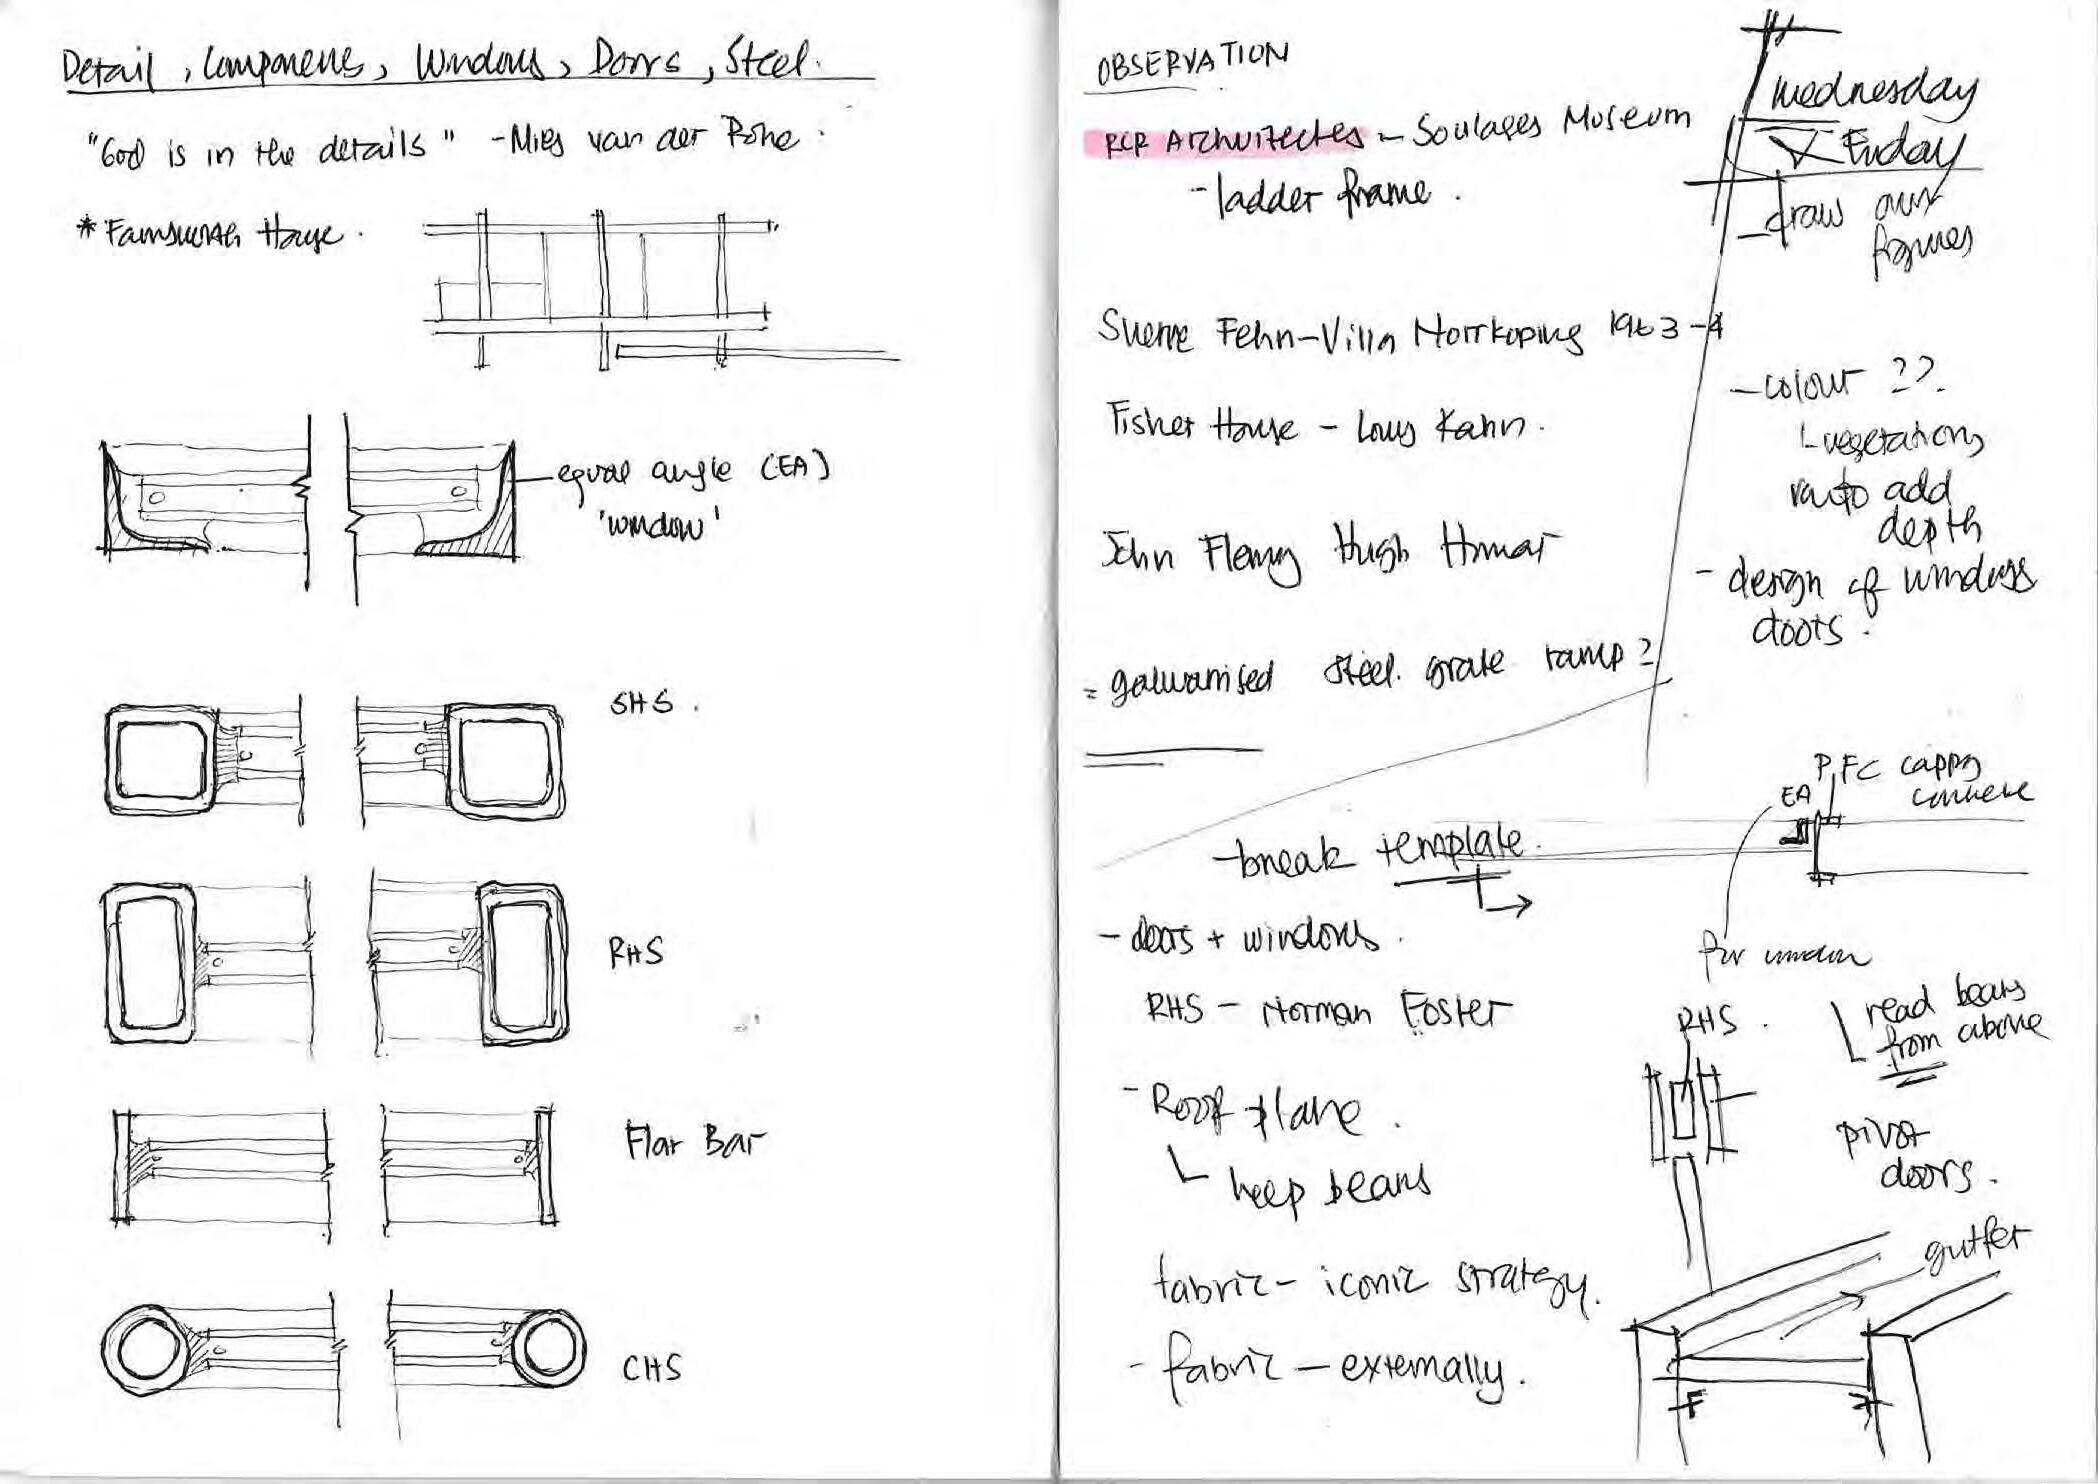 Detail, Components, Windows, Doors, Steel.
"God is in the details" - Mies van der Rohe.
* Farnsworth House.
equal angle (EA)
'window'
SHS.
RHS
Flat Bar
CHS
OBSERVATION
RCR Architectes - Soulages Museum
- ladder frame.
Sverre Fehn - Villa Norrkoping 1963-4
Fisher House - Louis Kahn.
John Fleming Hugh
= galvanised steel. grate ramp?
Wednesday
Friday
- draw our
figures
- colour ??
vegetation
to add
depth
- design of windows
doors.
- break template.
- doors + windows.
RHS - Norman Foster
- Roof plane.
keep beams
fabric - iconic strategy.
- fabric - externally.
PFC capping
concrete
EA
for window
RHS.
read beams
from above
pivot
doors.
gutter